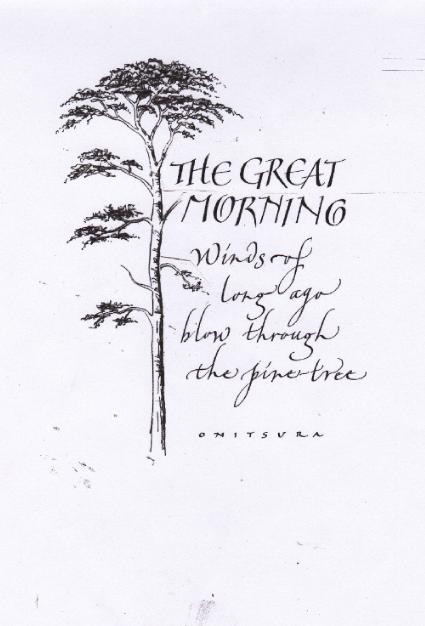 THE GREAT
MORNING
Winds of
long ago
blow through
the pine-tree
ONITSURA